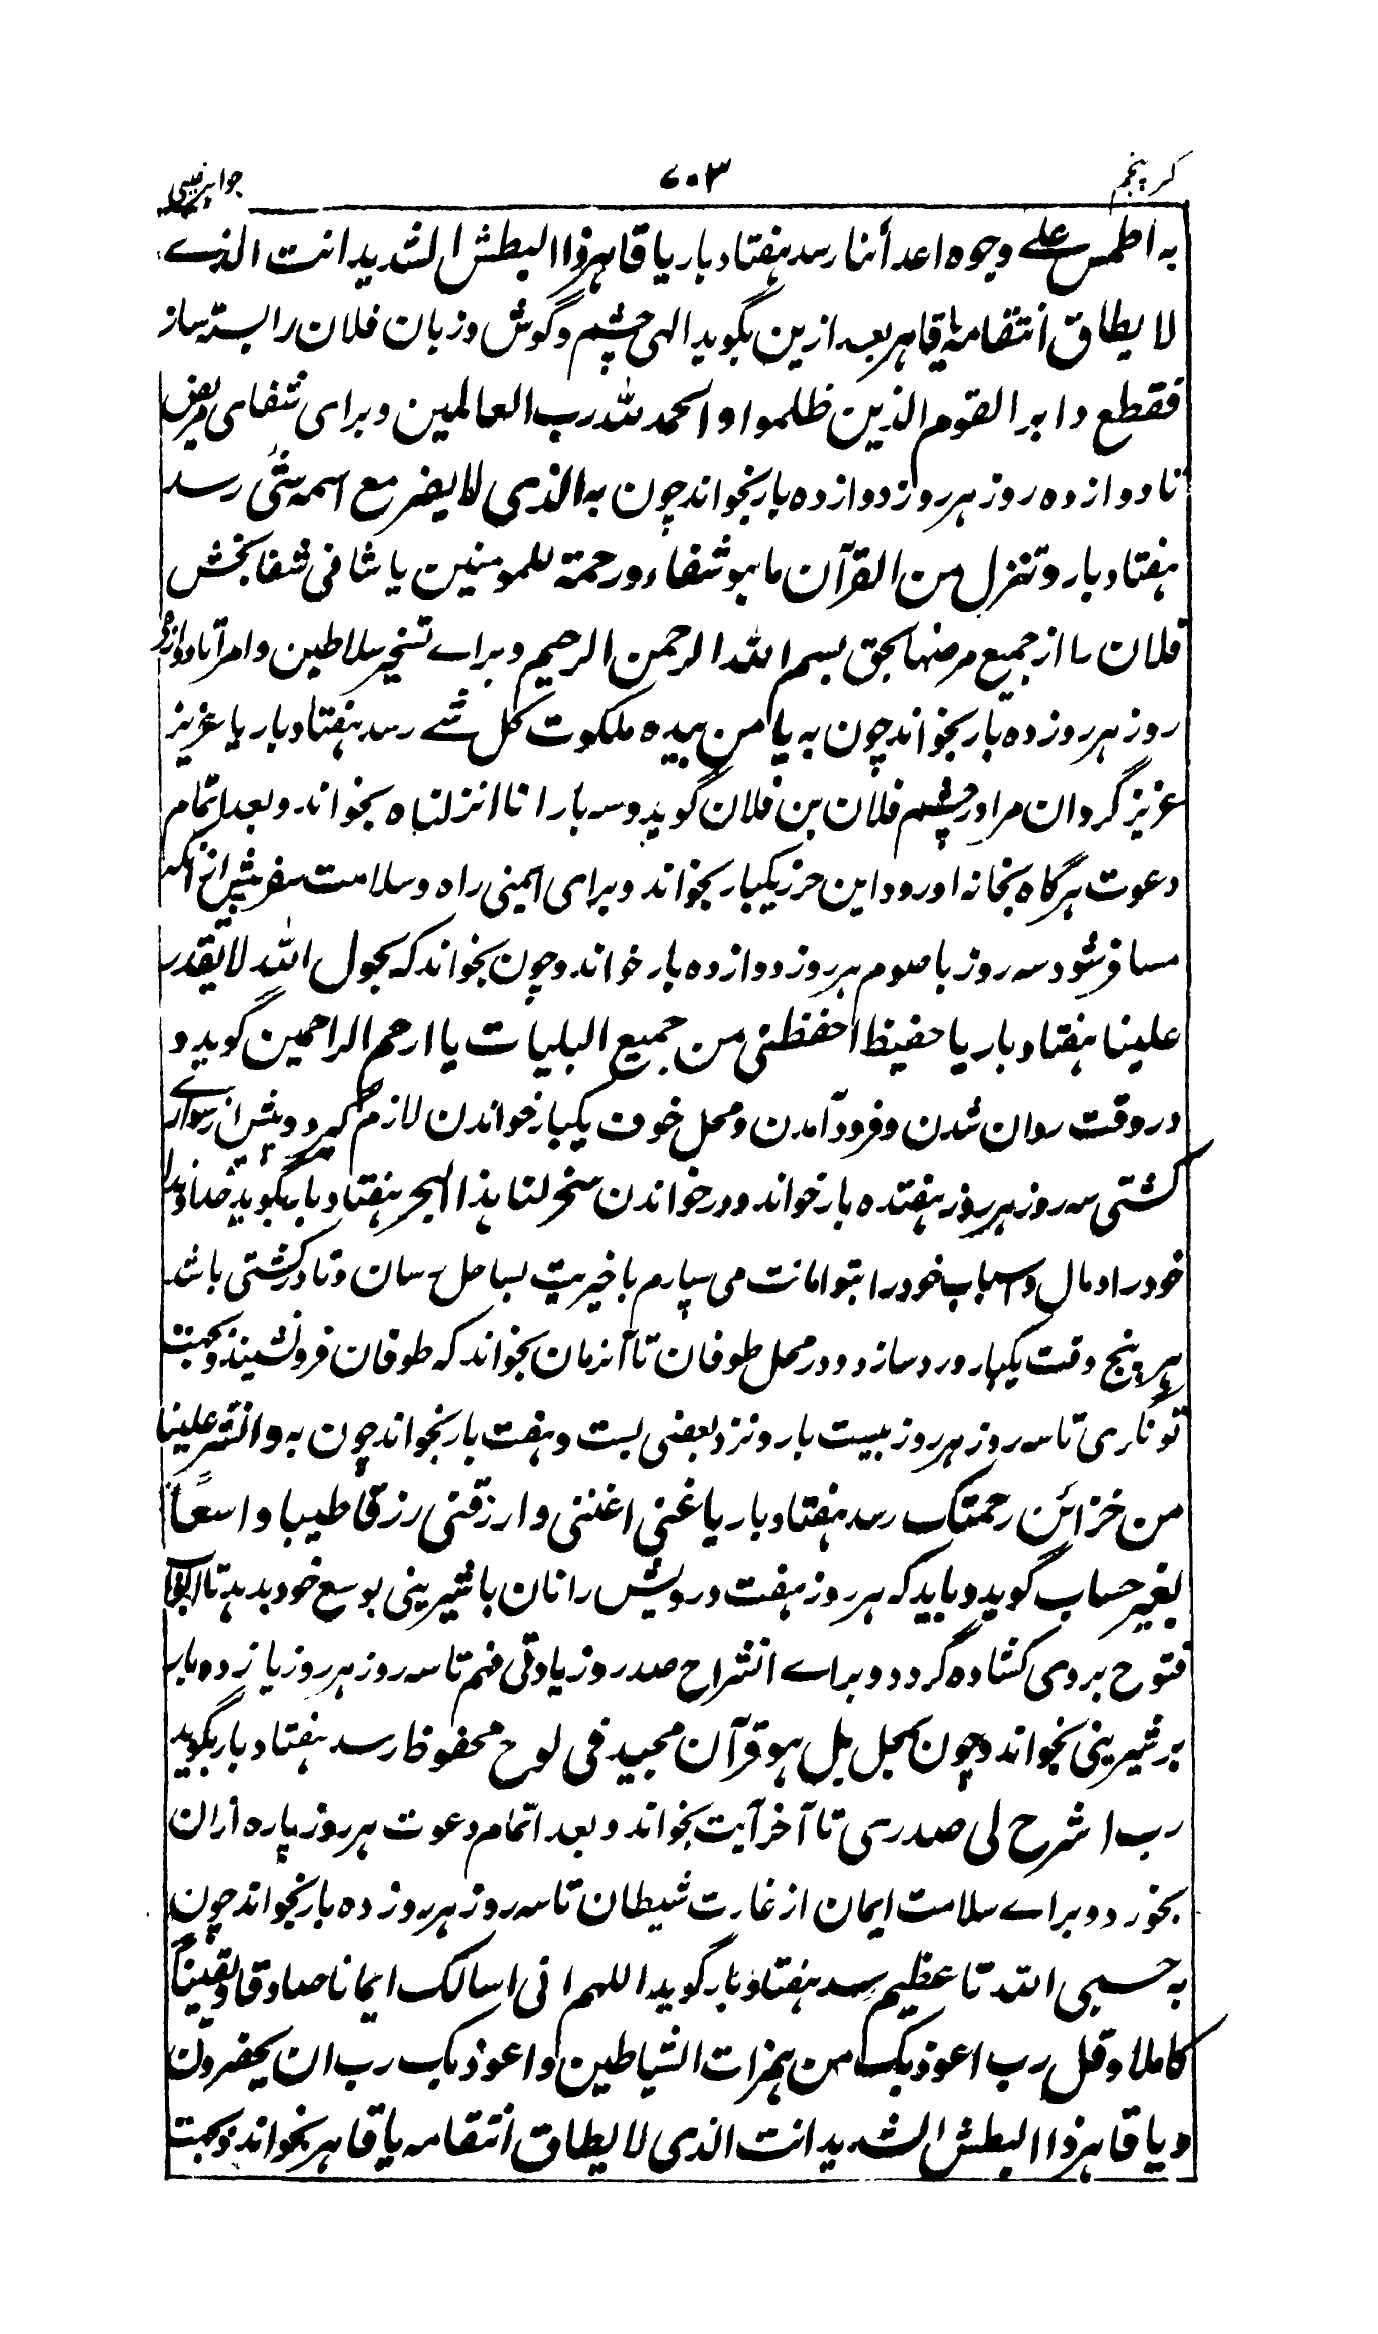 گر پنجم ۶۰۳ جواہر خمسی
بہ اطمس علے وجوہ اعدأنا رسد ہفتاد بار یا قاہر ذا البطش الشدید انت الذے
لا یطاق أنتقامہ یا قاہر بعد ازین بگوید الہی چشم و گوش و زبان فلان را بستہ ساز
فقطع دابر القوم الذین ظلموا و الحمد للہ رب العالمین و برای شفای مریض
تا دوازدہ روز ہر روز دوازدہ بار بخواند چون بہ الذی لا یضر مع اسمہ شئی رسد
ہفتاد بار و تنزل من القرآن ما ہو شفاء و رحمۃ للمومنین یا شافی شفا بخش
فلان را از جمیع مرضہا بحق بسم اللہ الرحمن الرحیم و براے تسخیر سلاطین و امرا تا دوازدہ
روز ہر روز دہ بار بخواند چون بہ یا من بیدہ ملکوت کل شے رسد ہفتاد بار یا عزیز
عزیز گردان مرا در چشم فلان بن فلان گوید و سہ بار انا انزلناہ بخواند و بعد اتمام
دعوت ہر گاہ بخانہ او رود این حرز یکبار بخواند و برای ایمنی راہ و سلامت سفر پیش از انکہ
مسافر شود سہ روز با صوم ہر روز دوازدہ بار خواند و چون بخواند کہ بحول اللہ لا یقدر
علینا ہفتاد بار یا حفیظ احفظنی من جمیع البلیات یا ارحم الراحمین گوید و
در وقت روان شدن و فرود آمدن و محل خوف یکبار خواندن لازم گیرد و پیش از سوارے
کشتی سہ روز ہر روز ہفتدہ بار خواند و در خواندن سخر لنا ہذا البحر ہفتاد بار بگوید خداوندا
خود را و مال و اسباب خود را بتو امانت می سپارم با خیریت بساحل رسان و تا در کشتی باشد
ہر پنج وقت یکبار ورد سازد و در محل طوفان تا آنزمان بخواند کہ طوفان فرو نشیند و بجہت
تونگری تا سہ روز ہر روز بیست بار و نزد بعضی بست و ہفت بار بخواند چون بہ و انشر علینا
من خزائن رحمتک رسد ہفتاد بار یا غنی اغننی و ارزقنی رزقا طیبا و اسعًا
بغیر حساب گوید و باید کہ ہر روز ہفت درویش را نان با شیرینی بوسع خود بدہد تا ابواب
فتوح بروی کشادہ گردد و براے انشراح صدر و زیادتی فہم تا سہ روز ہر روز یازدہ بار
بر شیرینی بخواند و چون بمحل بل ہو قرآن مجید فی لوح محفوظ رسد ہفتاد بار بگوید
رب اشرح لی صدری تا آخر آیت بخواند و بعد اتمام دعوت ہر روز پارہ ازان
بخورد و براے سلامت ایمان از غارت شیطان تا سہ روز ہر روز دہ بار بخواند چون
بہ حسبی اللہ تا عظیم رسد ہفتاد بار گوید اللہم انی اسالک ایمانا صادقا و یقینًا
کاملا و قل رب اعوذ بک من ہمزات الشیاطین و اعوذ بک رب ان یحضرون
و یا قاہر ذا البطش الشدید انت الذی لا یطاق أنتقامہ یا قاہر بخواند و بجہت